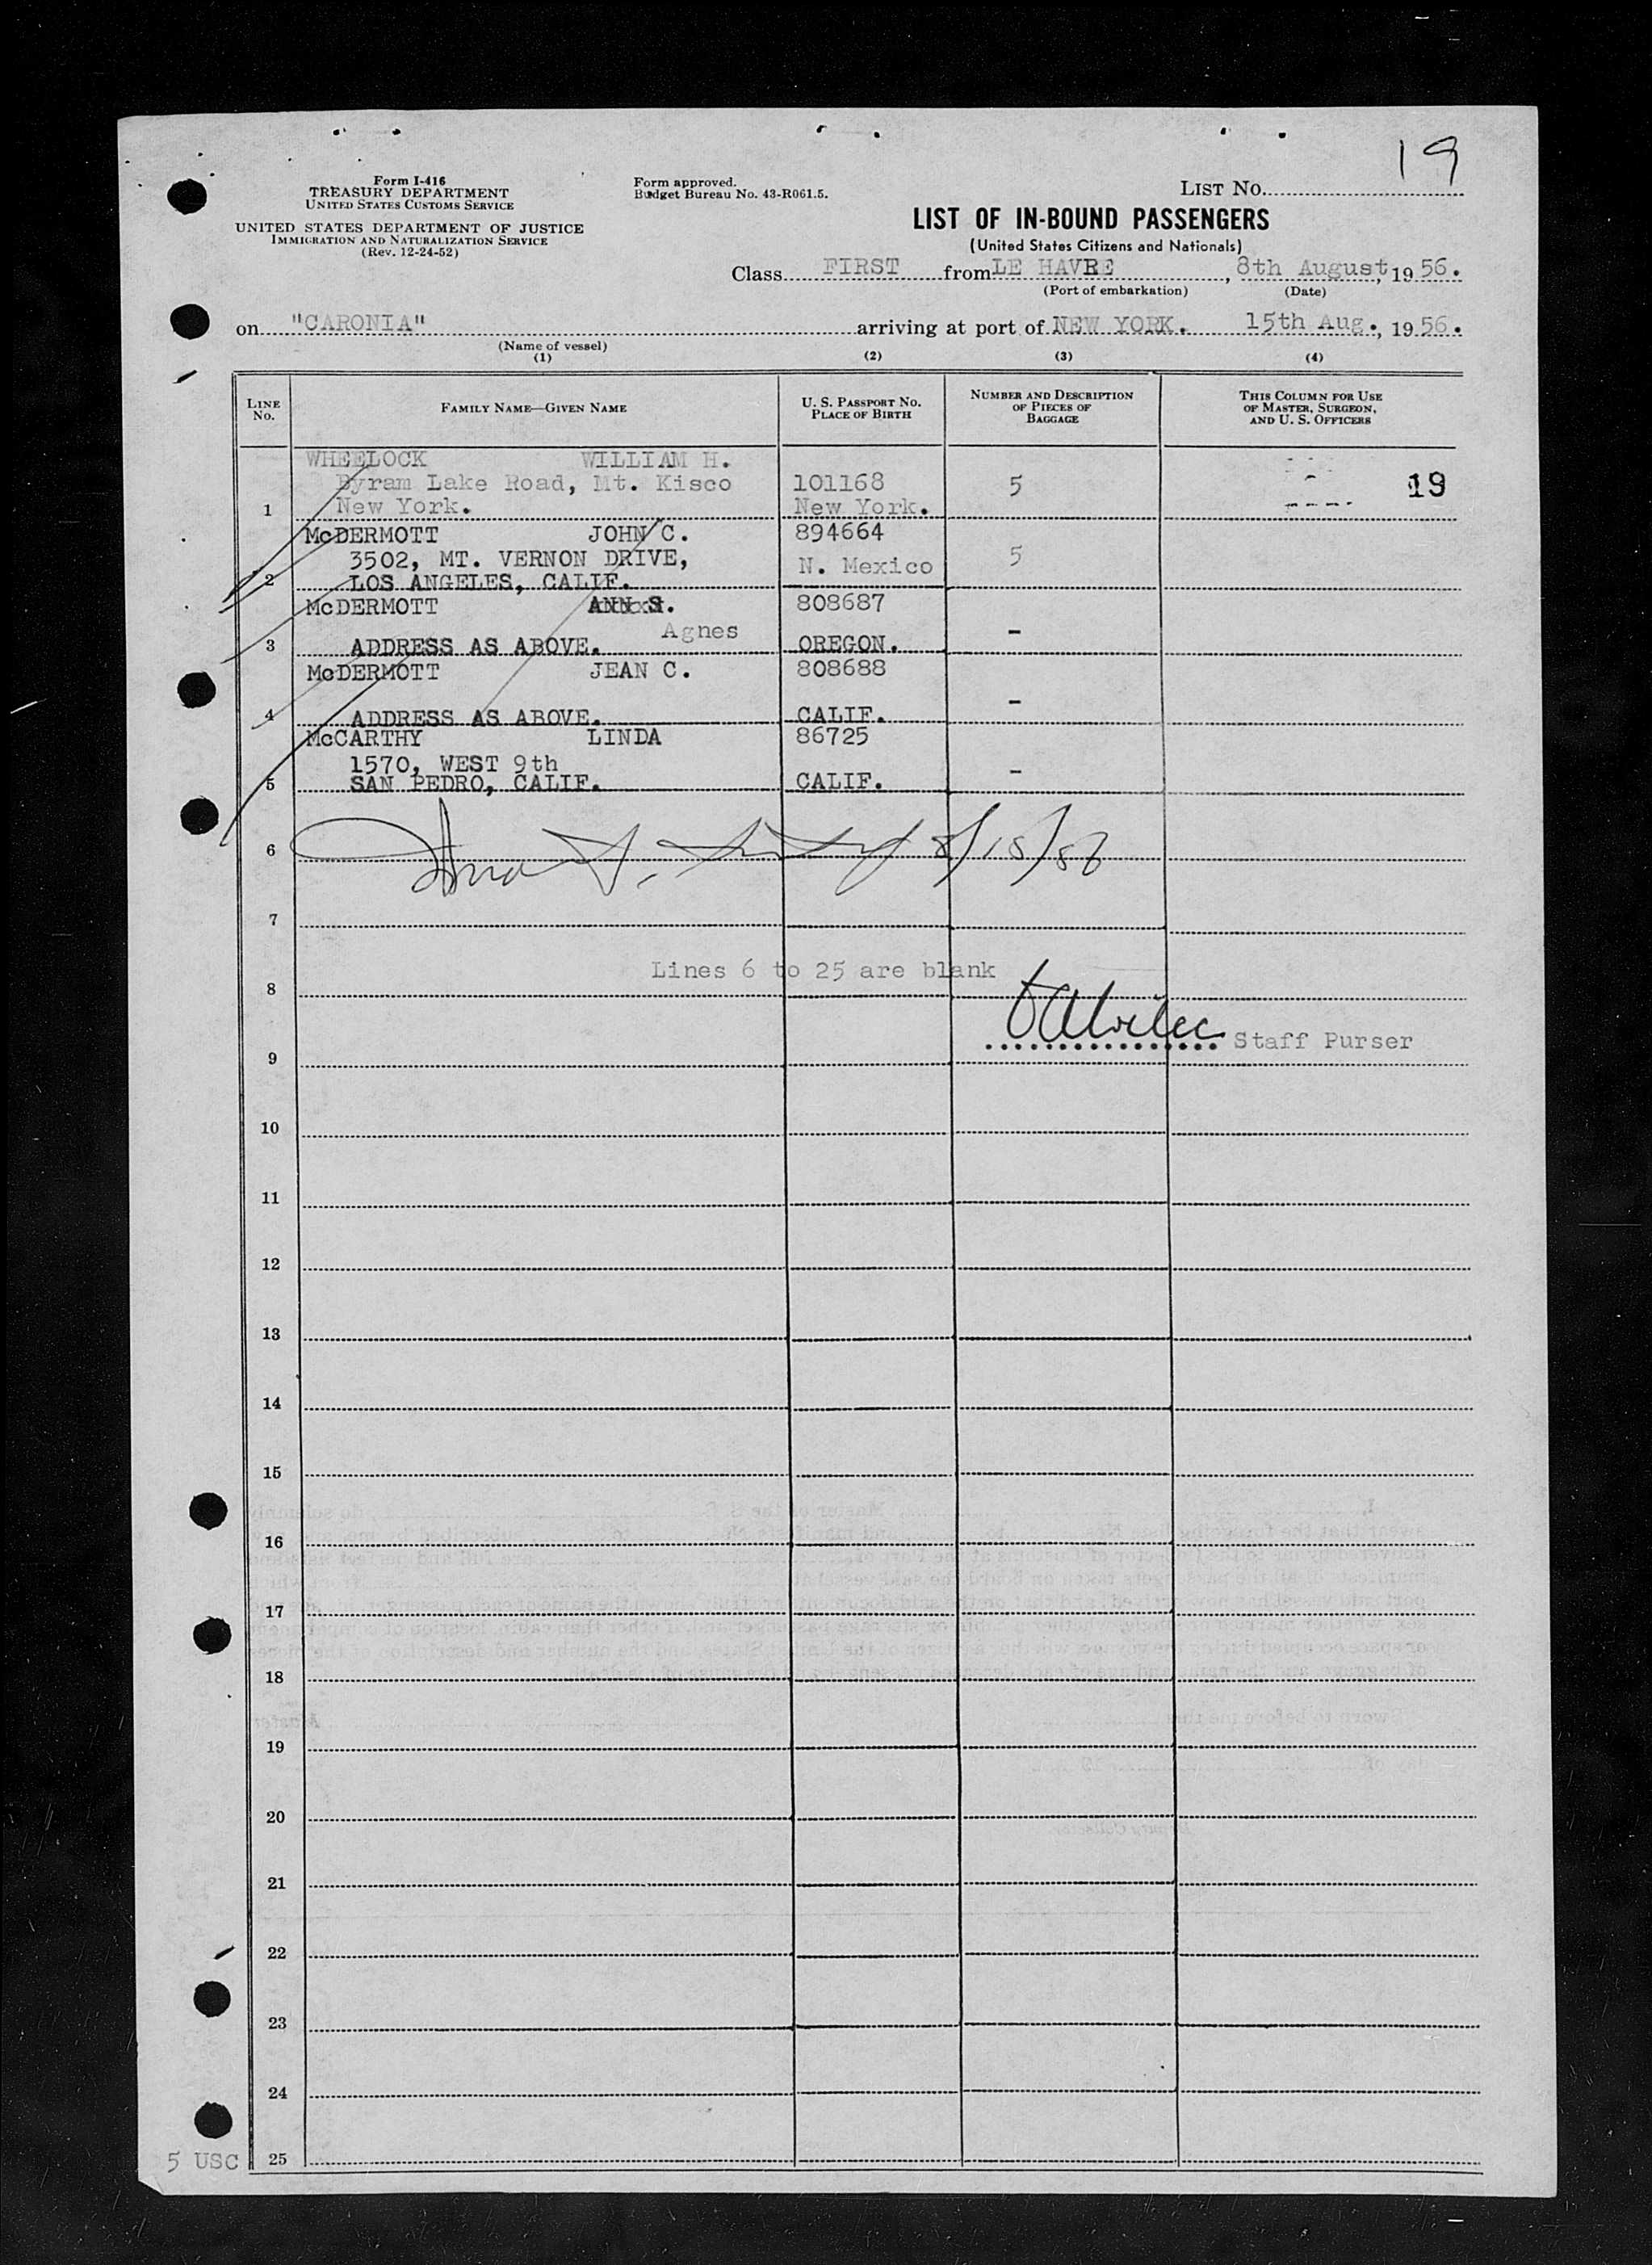 19
Form I-416
TREASURY DEPARTMENT
UNITED STATES CUSTOMS SERVICE
UNITED STATES DEPARTMENT OF JUSTICE
IMMIGRATION AND NATURALIZATION SERVICE
(Rev. 12-24-52)
Form approved.
Budget Bureau No. 43-R061.5.
LIST NO.
LIST OF IN-BOUND PASSENGERS
(United States Citizens and Nationals)
Class FIRST from LE HAVRE, 8th August, 1956.
(Port of embarkation) (Date)
on "CARONIA" arriving at port of NEW YORK. 15th Aug., 1956.
(Name of vessel)
(1) (2) (3) (4)
LINE NO. FAMILY NAME—GIVEN NAME U. S. PASSPORT NO. PLACE OF BIRTH NUMBER AND DESCRIPTION OF PIECES OF BAGGAGE THIS COLUMN FOR USE OF MASTER, SURGEON, AND U. S. OFFICERS
WHEELOCK WILLIAM H.
Byram Lake Road, Mt. Kisco 101168 5 19
1 New York. New York.
McDERMOTT JOHN C. 894664
3502, MT. VERNON DRIVE, N. Mexico 5
2 LOS ANGELES, CALIF.
McDERMOTT ANN S. 808687
Agnes -
3 ADDRESS AS ABOVE. OREGON.
McDERMOTT JEAN C. 808688
4 ADDRESS AS ABOVE. CALIF. -
McCARTHY LINDA 86725
1570, WEST 9th -
5 SAN PEDRO, CALIF. CALIF.
6 8/15/56
7
Lines 6 to 25 are blank
8
Staff Purser
9
10
11
12
13
14
15
16
17
18
19
20
21
22
23
24
5 USC 25